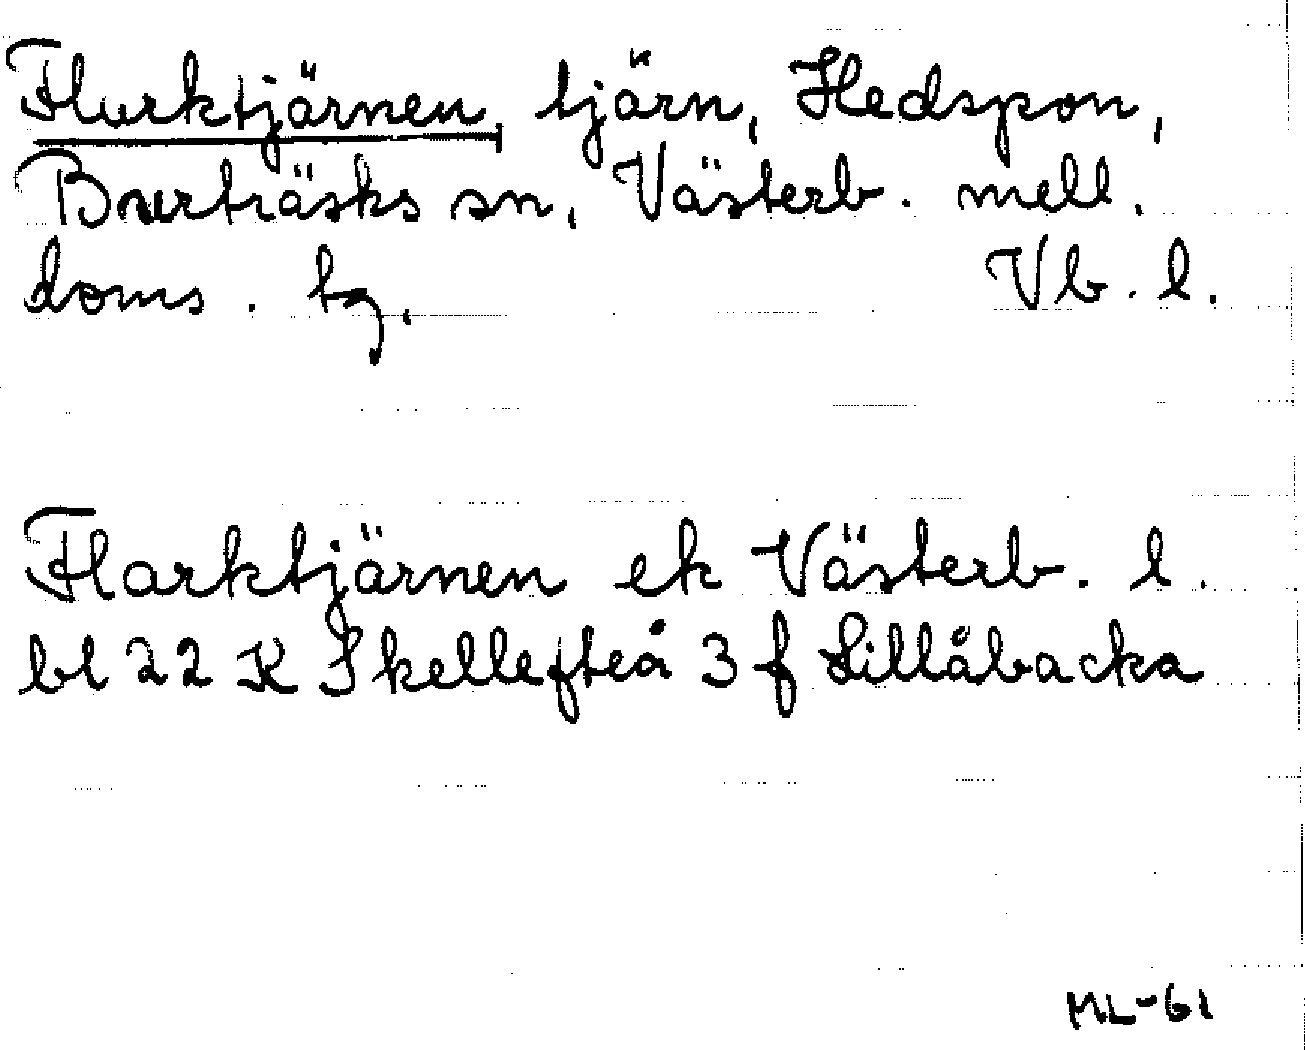 Flurktjärnen, tjärn, Hedspon,
Burträsks sn, Västerb. mell.
doms. tg. Vb. l.
Flarktjärnen ek Västerb. l.
bl 22 K Skellefteå 3 f Lillåbacka
ML-61